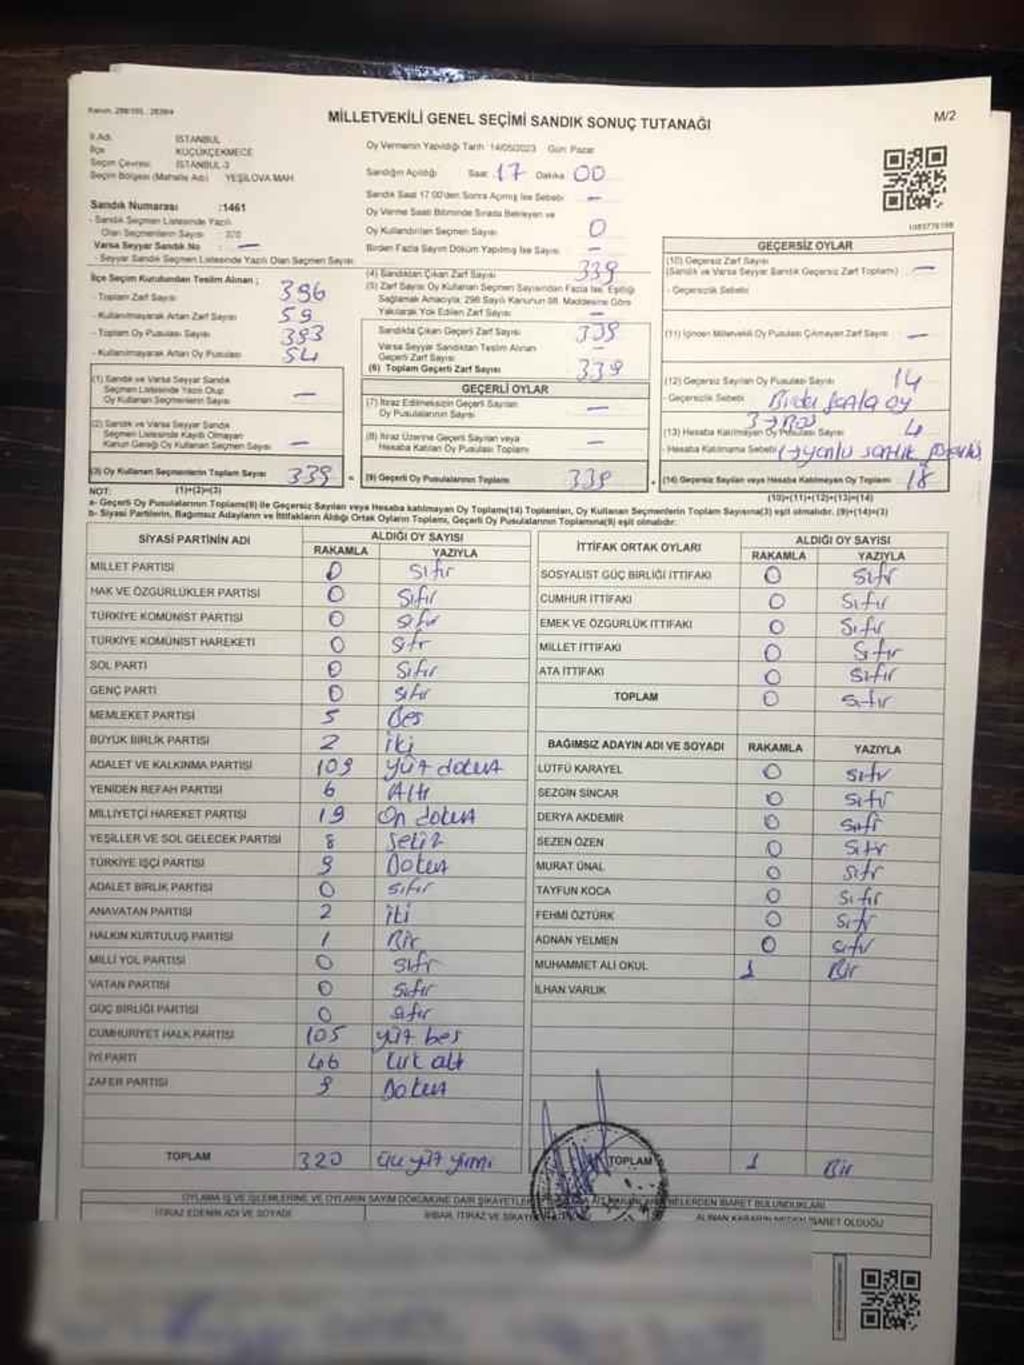 MİLLETVEKİLİ GENEL SEÇİMİ SANDIK SONUÇ TUTANAĞI
M/2
İl Adı: İSTANBUL
İlçe KÜÇÜKÇEKMECE
Seçim Çevresi: İSTANBUL-3
Seçim Bölgesi (Mahalle Adı) YEŞİLOVA MAH.
Sandık Numarası :1461
- Sandık Seçmen Listesinde Yazılı
Olan Seçmenlerin Sayısı 370
Varsa Seyyar Sandık No —
- Seyyar Sandık Seçmen Listesinde Yazılı Olan Seçmen Sayısı
İlçe Seçim Kurulundan Teslim Alınan ;
- Toplam Zarf Sayısı 396
- Kullanılmayarak Artan Zarf Sayısı 59
- Toplam Oy Pusulası Sayısı 393
- Kullanılmayarak Artan Oy Pusulası 54
(1) Sandık ve Varsa Seyyar Sandık
Seçmen Listesinde Yazılı Olup
Oy Kullanan Seçmenlerin Sayısı —
(2) Sandık ve Varsa Seyyar Sandık
Seçmen Listesinde Kayıtlı Olmayan
Kanun Gereği Oy Kullanan Seçmen Sayısı —
(3) Oy Kullanan Seçmenlerin Toplam Sayısı 339
(1)+(2)=(3)
Oy Vermenin Yapıldığı Tarih 14/05/2023 Gün: Pazar
Sandığın Açıldığı Saat 17 Dakika 00
Sandık Saat 17:00'den Sonra Açılmış İse Sebebi —
Oy Verme Saati Bitiminde Sırada Bekleyen ve
Oy Kullandırılan Seçmen Sayısı 0
Birden Fazla Sayım Döküm Yapılmış İse Sayısı —
(4) Sandıktan Çıkan Zarf Sayısı 339
(5) Zarf Sayısı Oy Kullanan Seçmen Sayısından Fazla İse, Eşitliği
Sağlamak Amacıyla; 298 Sayılı Kanunun 98. Maddesine Göre
Yakılarak Yok Edilen Zarf Sayısı —
Sandıkta Çıkan Geçerli Zarf Sayısı 339
Varsa Seyyar Sandıktan Teslim Alınan
Geçerli Zarf Sayısı —
(6) Toplam Geçerli Zarf Sayısı 339
GEÇERLİ OYLAR
(7) İtiraz Edilmeksizin Geçerli Sayılan
Oy Pusulalarının Sayısı —
(8) İtiraz Üzerine Geçerli Sayılan veya
Hesaba Katılan Oy Pusulaları Toplamı —
(9) Geçerli Oy Pusulalarının Toplamı 339
GEÇERSİZ OYLAR
(10) Geçersiz Zarf Sayısı
(Sandık ve Varsa Seyyar Sandık Geçersiz Zarf Toplamı) —
- Geçersizlik Sebebi
(11) İçinden Milletvekili Oy Pusulası Çıkmayan Zarf Sayısı —
(12) Geçersiz Sayılan Oy Pusulası Sayısı 14
- Geçersizlik Sebebi Birden fazla oy
(13) Hesaba Katılmayan Oy Pusulası Sayısı 4
- Hesaba Katılmama Sebebi
(14) Geçersiz Sayılan veya Hesaba Katılmayan Oy Toplamı 18
(10)+(11)+(12)+(13)=(14)
NOT:
a- Geçerli Oy Pusulalarının Toplamı(9) ile Geçersiz Sayılan veya Hesaba katılmayan Oy Toplamı(14) Toplamları, Oy Kullanan Seçmenlerin Toplam Sayısına(3) eşit olmalıdır. (9)+(14)=(3)
b- Siyasi Partilerin, Bağımsız Adayların ve İttifakların Aldığı Ortak Oyların Toplamı, Geçerli Oy Pusulalarının Toplamına(9) eşit olmalıdır.
SİYASİ PARTİNİN ADI ALDIĞI OY SAYISI
RAKAMLA YAZIYLA
MİLLET PARTİSİ 0 Sıfır
HAK VE ÖZGÜRLÜKLER PARTİSİ 0 Sıfır
TÜRKİYE KOMÜNİST PARTİSİ 0 Sıfır
TÜRKİYE KOMÜNİST HAREKETİ 0 Sıfır
SOL PARTİ 0 Sıfır
GENÇ PARTİ 0 Sıfır
MEMLEKET PARTİSİ 5 Beş
BÜYÜK BİRLİK PARTİSİ 2 iki
ADALET VE KALKINMA PARTİSİ 109 yüz dokuz
YENİDEN REFAH PARTİSİ 6 Altı
MİLLİYETÇİ HAREKET PARTİSİ 19 On dokuz
YEŞİLLER VE SOL GELECEK PARTİSİ 8 Sekiz
TÜRKİYE İŞÇİ PARTİSİ 9 Dokuz
ADALET BİRLİK PARTİSİ 0 sıfır
ANAVATAN PARTİSİ 2 iki
HALKIN KURTULUŞ PARTİSİ 1 Bir
MİLLİ YOL PARTİSİ 0 Sıfır
VATAN PARTİSİ 0 Sıfır
GÜÇ BİRLİĞİ PARTİSİ 0 Sıfır
CUMHURİYET HALK PARTİSİ 105 yüz beş
İYİ PARTİ 46 kırk altı
ZAFER PARTİSİ 9 Dokuz
TOPLAM 320 üç yüz yirmi
İTTİFAK ORTAK OYLARI ALDIĞI OY SAYISI
RAKAMLA YAZIYLA
SOSYALİST GÜÇ BİRLİĞİ İTTİFAKI 0 Sıfır
CUMHUR İTTİFAKI 0 Sıfır
EMEK VE ÖZGÜRLÜK İTTİFAKI 0 Sıfır
MİLLET İTTİFAKI 0 Sıfır
ATA İTTİFAKI 0 Sıfır
TOPLAM 0 Sıfır
BAĞIMSIZ ADAYIN ADI VE SOYADI RAKAMLA YAZIYLA
LÜTFÜ KARAYEL 0 Sıfır
SEZGİN SİNCAR 0 Sıfır
DERYA AKDEMİR 0 Sıfır
SEZEN ÖZEN 0 Sıfır
MURAT ÜNAL 0 Sıfır
TAYFUN KOCA 0 Sıfır
FEHMİ ÖZTÜRK 0 Sıfır
ADNAN YELMEN 0 Sıfır
MUHAMMET ALİ OKUL 1 Bir
İLHAN VARLIK
TOPLAM 1 Bir
OYLAMA İŞ VE İŞLEMLERİNE VE OYLARIN SAYIM DÖKÜMÜNE DAİR ŞİKAYETLER NELERDEN İBARET BULUNDUKLARI
İTİRAZ EDENİN ADI VE SOYADI
İHBAR, İTİRAZ VE
ALINAN KARARIN NEDEN İBARET OLDUĞU